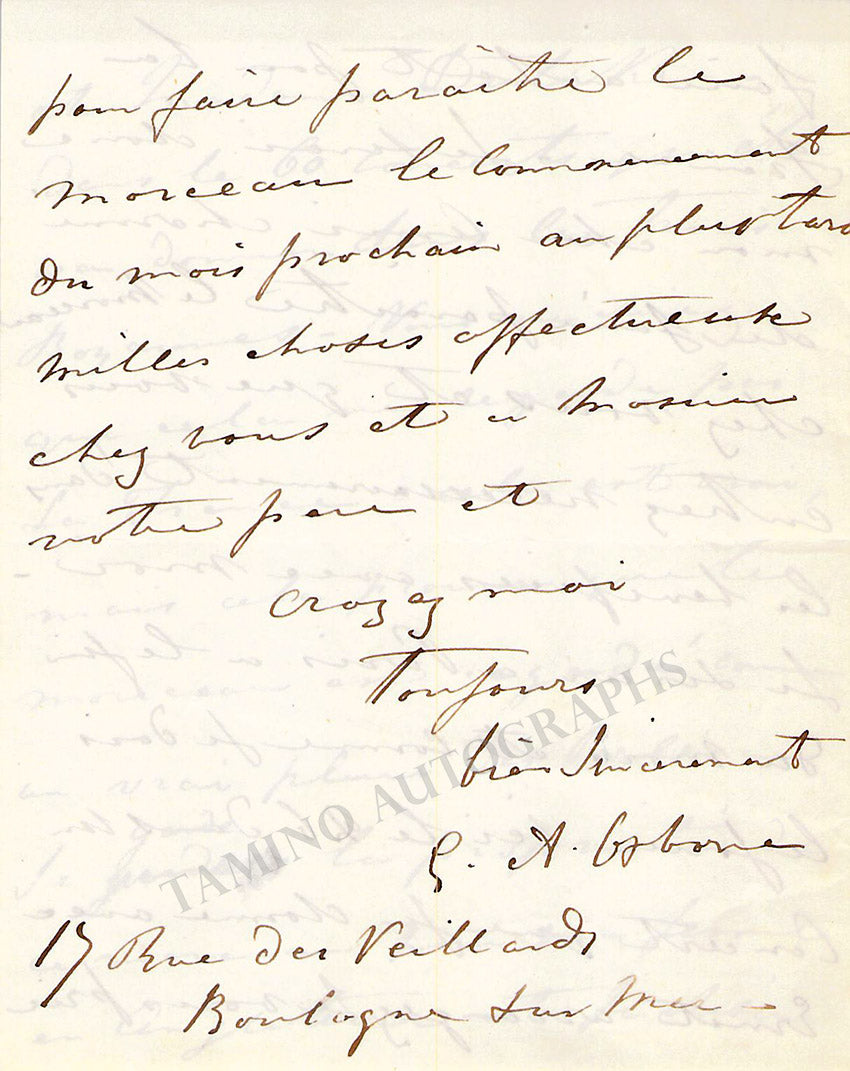 pour faire paraitre le
morceau le Commencement
du mois prochain au plus tard
milles choses affectueuse
chez vous et a Monsieur
votre pere et
Croyez moi
Toujours
bien Sincerement
G. A. Osborne
17 Rue des Veillards
Boulogne sur Mer -
TAMINO AUTOGRAPHS